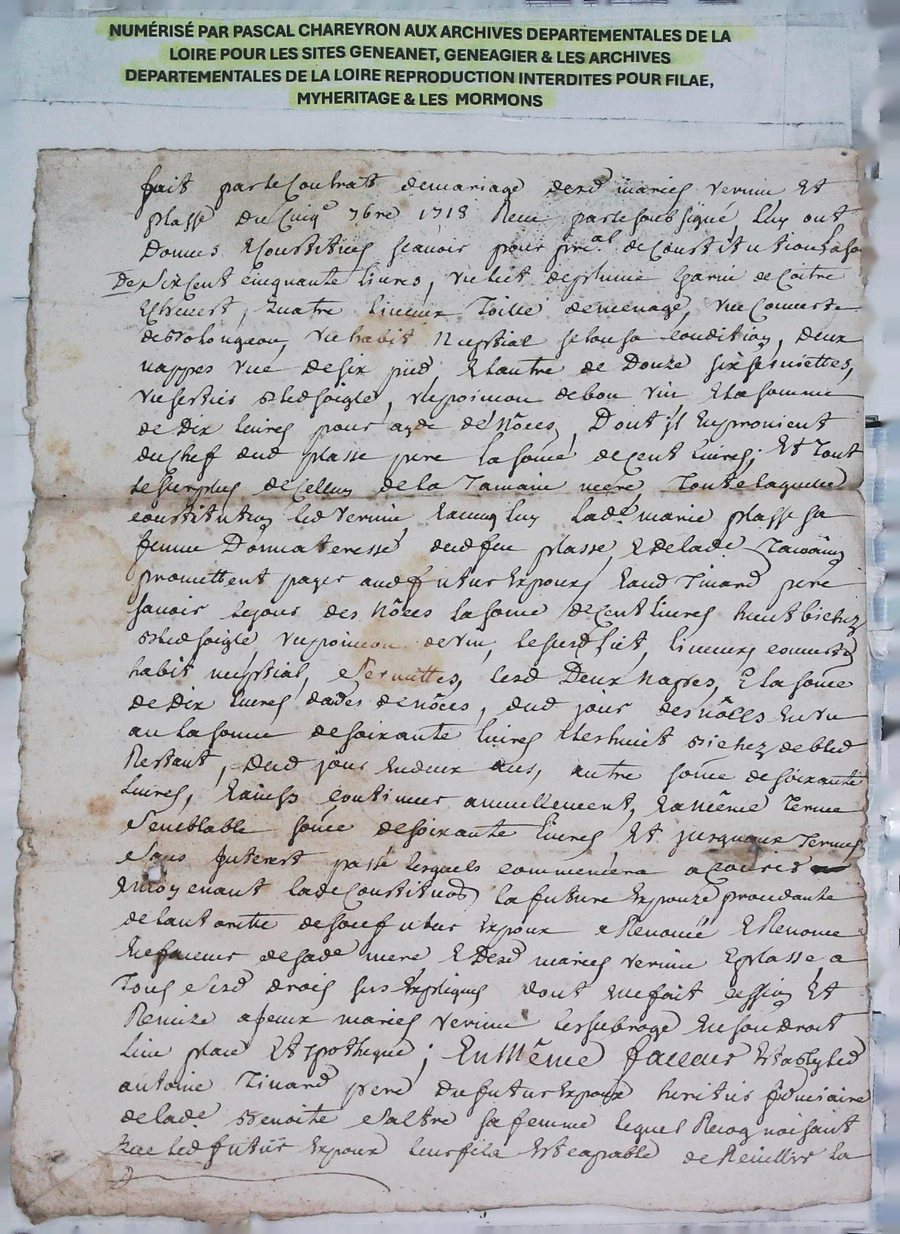 NUMÉRISÉ PAR PASCAL CHAREYRON AUX ARCHIVES DEPARTEMENTALES DE LA
LOIRE POUR LES SITES GENEANET, GENEAGIER & LES ARCHIVES
DEPARTEMENTALES DE LA LOIRE REPRODUCTION INTERDITES POUR FILAE,
MYHERITAGE & LES MORMONS
fait par le Contrat de mariage desd mariés Verrine Et
plasse du Cinqe 7bre 1718 Receu par le soubsigné, luy ont
Donnés & Constitués scavoir pour prinal de Constitution la so
De Six Cent cinquante livres, un lict de plume Garni de Coitre
& Chevest, quatre linceux Toille de menage, une Couverte
un habit Nuptial selon sa Condition, deux
nappes une de six pied, & lautre de Douze six serviettes,
un septier bled soigle, un poinson de bon vin & la somme
de Dix livres pour ayde de Nôces, Dont il En provient
du Chef dud plasse pere la some de Cent livres; Et Tout
le surplus de Celluy de la mere, Toute laquelle
constitution led Verrine, luy lade marie plasse sa
femme Donnateresse dud feu plasse, & de lade
promettent payer aud futur Expoux, & aud Tinard pere
savoir le jour des Nôces la some de Cent livres huit bichez
bled soigle, un poinson de vin, le surd lict, linceux, couverte
habit nuptial, serviettes, lesd Deux Nappes, & la some
de Dix livres de nôces, dud jour des nôces En un
an la somme de soixante livres & les huit bichez de bled
Restant, dud jour En deux ans, autre some de soixante
livres, & ainsy continuer annuellement, & a même Terme
semblable some de soixante livres Et jusquaux Termes
sans Interest passé lesquels commencera a Courir
& moyenant lade Constitution la future Expouze procedante
de lautorité de son futur Expoux a Renoncé & Renonce
En faveur de sade mere & Desd mariés Verrine & plasse a
Tous sesd droits sus Expliqués dont Elle fait cession Et
Remize a iceux mariés Verrine les subroge En son droit
lieu place Et Ypotheque; En Même faveur Estably led
antoine Tinard pere du futur Expoux heritier fiduciaire
de lade Benoite sa femme lequel Recognoissant
que led futur Expoux leur fils Est capable de Reculiir la